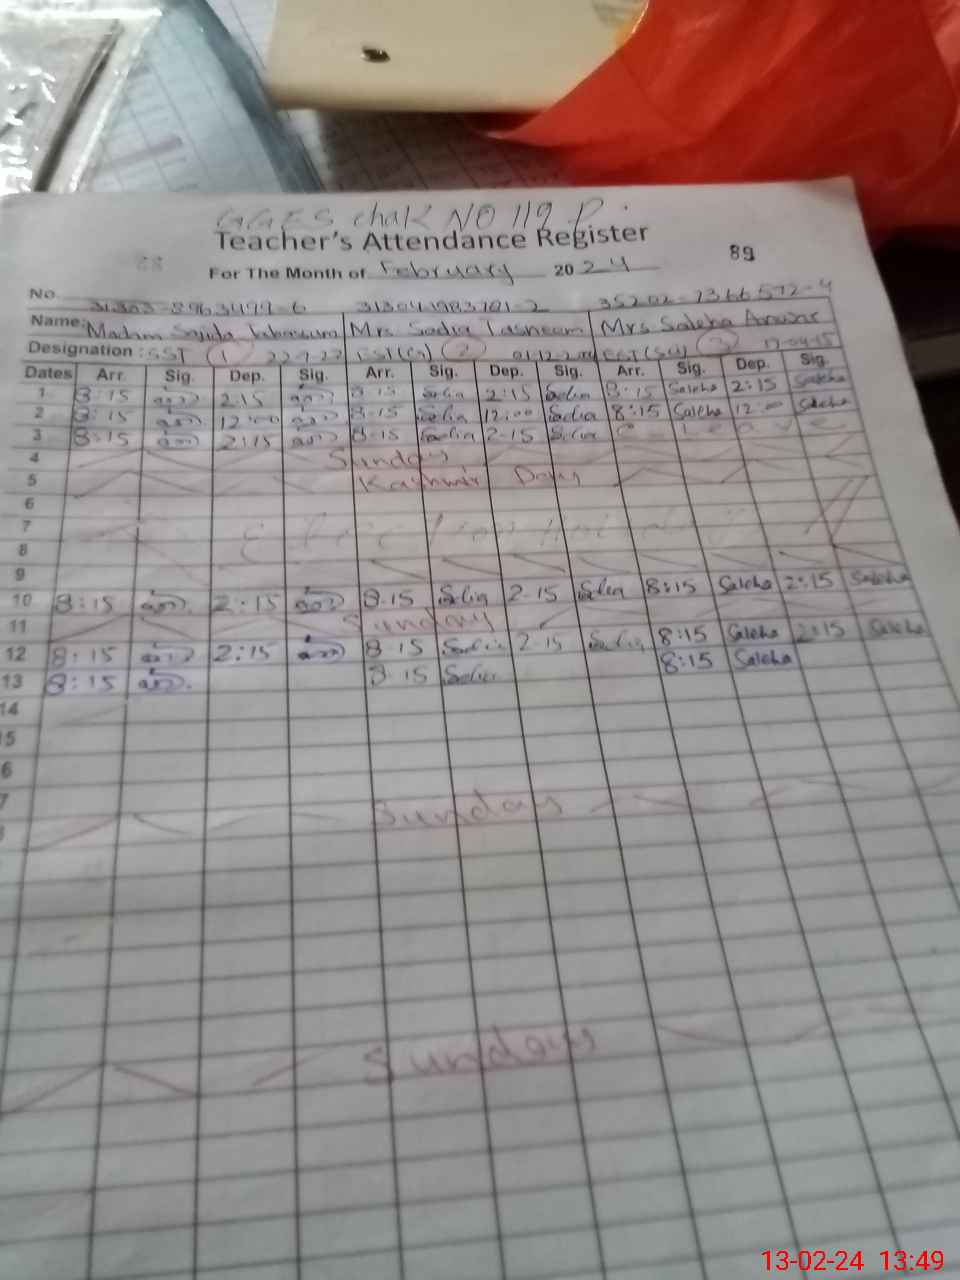 GGES chak NO 119 P.
Teacher's Attendance Register
89
For The Month of February 2024
No. 31303-8963499-6 35202-7366572-4
Name: Madam Sajida Mrs. Sadia Tasneem Mrs. Saleha Anwar
Designation: SST 1 EST(G) 2 EST(Sci) 3
Dates Arr. Sig. Dep. Sig. Arr. Sig. Dep. Sig. Arr. Sig. Dep. Sig.
1 8:15 2:15 8-15 Sadia 2:15 Sadia 8:15 Saleha 2:15 Saleha
2 8:15 12:00 8-15 Sadia 12:00 Sadia 8:15 Saleha 12:00 Saleha
3 8:15 2:15 8-15 Sadia 2-15 Sadia C-Leave
4 Sunday
5 Kashmir Day
6
7
8
9
10 8:15 2:15 8.15 Sadia 2-15 Sadia 8:15 Saleha 2:15 Saleha
11 Sunday
12 8:15 2:15 8-15 Sadia 2-15 Sadia 8:15 Saleha 2:15 Saleha
13 8:15 8-15 Sadia 8:15 Saleha
14
5
6
7
Sunday
Sunday
13-02-24 13:49